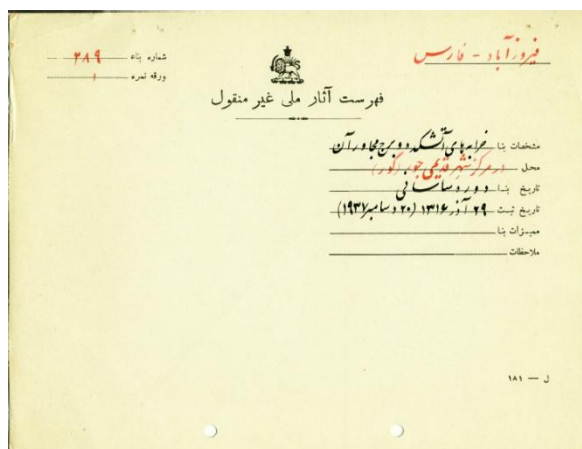 فیروزآباد - فارس
شماره بناء ۲۸۹
ورقه نمره ۱
فهرست آثار ملی غیر منقول
مشخصات بنا خرابه‌های آتشکده و برج مجاور آن
محل در مرکز شهر قدیمی جور (گور)
تاریخ بنا دوره ساسانی
تاریخ ثبت ۲۹ آذر ۱۳۱۶ (۲۰ دسامبر ۱۹۳۷)
ممیزات بنا
ملاحظات
ل — ۱۸۱